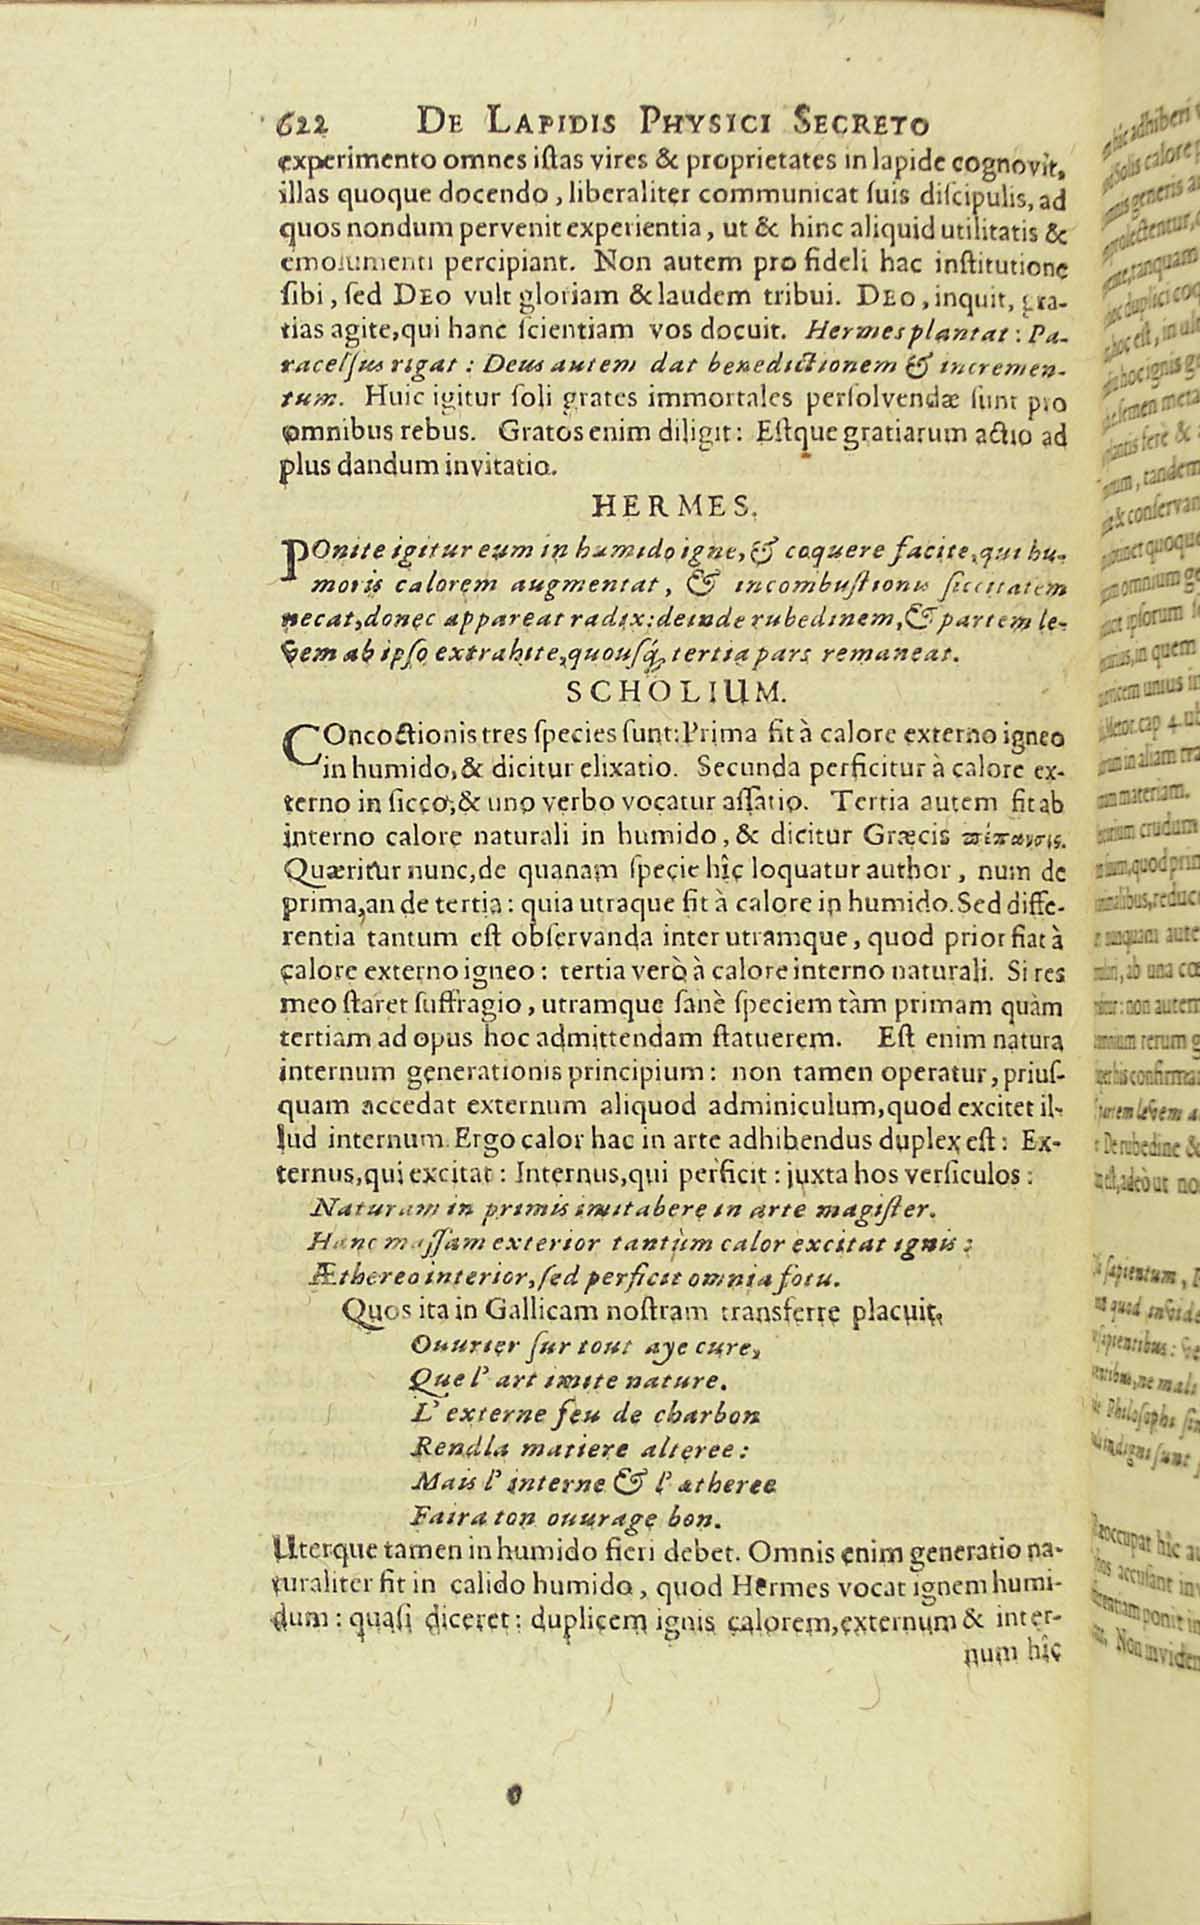 622 De Lapidis Physici Secreto
experimento omnes istas vires & proprietates in lapide cognovit,
illas quoque docendo, liberaliter communicat suis discipulis, ad
quos nondum pervenit experientia, ut & hinc aliquid utilitatis &
emolumenti percipiant. Non autem pro fideli hac institutione
sibi, sed Deo vult gloriam & laudem tribui. Deo, inquit, gra-
tias agite, qui hanc scientiam vos docuit. Hermes plantat: Pa-
racelsus rigat: Deus autem dat benedictionem & incremen-
tum. Huic igitur soli grates immortales persolvendæ sunt pro
omnibus rebus. Gratos enim diligit: Estque gratiarum actio ad
plus dandum invitatio.
HERMES.
POnite igitur eum in humido igne, & coquere facite, qui hu-
moris calorem augmentat, & incombustionis siccitatem
necat, donec appareat radix: deinde rubedinem, & partem le-
vem ab ipso extrahite, quousq́; tertia pars remaneat.
SCHOLIUM.
COncoctionis tres species sunt: Prima fit à calore externo igneo
in humido, & dicitur elixatio. Secunda perficitur à calore ex-
terno in sicco, & uno verbo vocatur assatio. Tertia autem fit ab
interno calore naturali in humido, & dicitur Græcis πέπανσις.
Quæritur nunc, de quanam specie hîc loquatur author, num de
prima, an de tertia: quia utraque fit à calore in humido. Sed diffe-
rentia tantum est observanda inter utramque, quod prior fiat à
calore externo igneo: tertia verò à calore interno naturali. Si res
meo staret suffragio, utramque sanè speciem tàm primam quàm
tertiam ad opus hoc admittendam statuerem. Est enim natura
internum generationis principium: non tamen operatur, prius-
quam accedat externum aliquod adminiculum, quod excitet il-
lud internum. Ergo calor hac in arte adhibendus duplex est: Ex-
ternus, qui excitat: Internus, qui perficit: juxta hos versiculos:
Naturam in primis imitabere in arte magister.
Hanc massam exterior tantùm calor excitat ignis:
Æthereo interior, sed perficit omnia fotu.
Quos ita in Gallicam nostram transferre placuit,
Ouurier sur tout aye cure,
Que l'art imite nature.
L'externe feu de charbon
Rend la matiere alteree:
Mais l'interne & l'ætheree
Faira ton ouurage bon.
Uterque tamen in humido fieri debet. Omnis enim generatio na-
turaliter fit in calido humido, quod Hermes vocat ignem humi-
dum: quasi diceret: duplicem ignis calorem, externum & inter-
num hîc